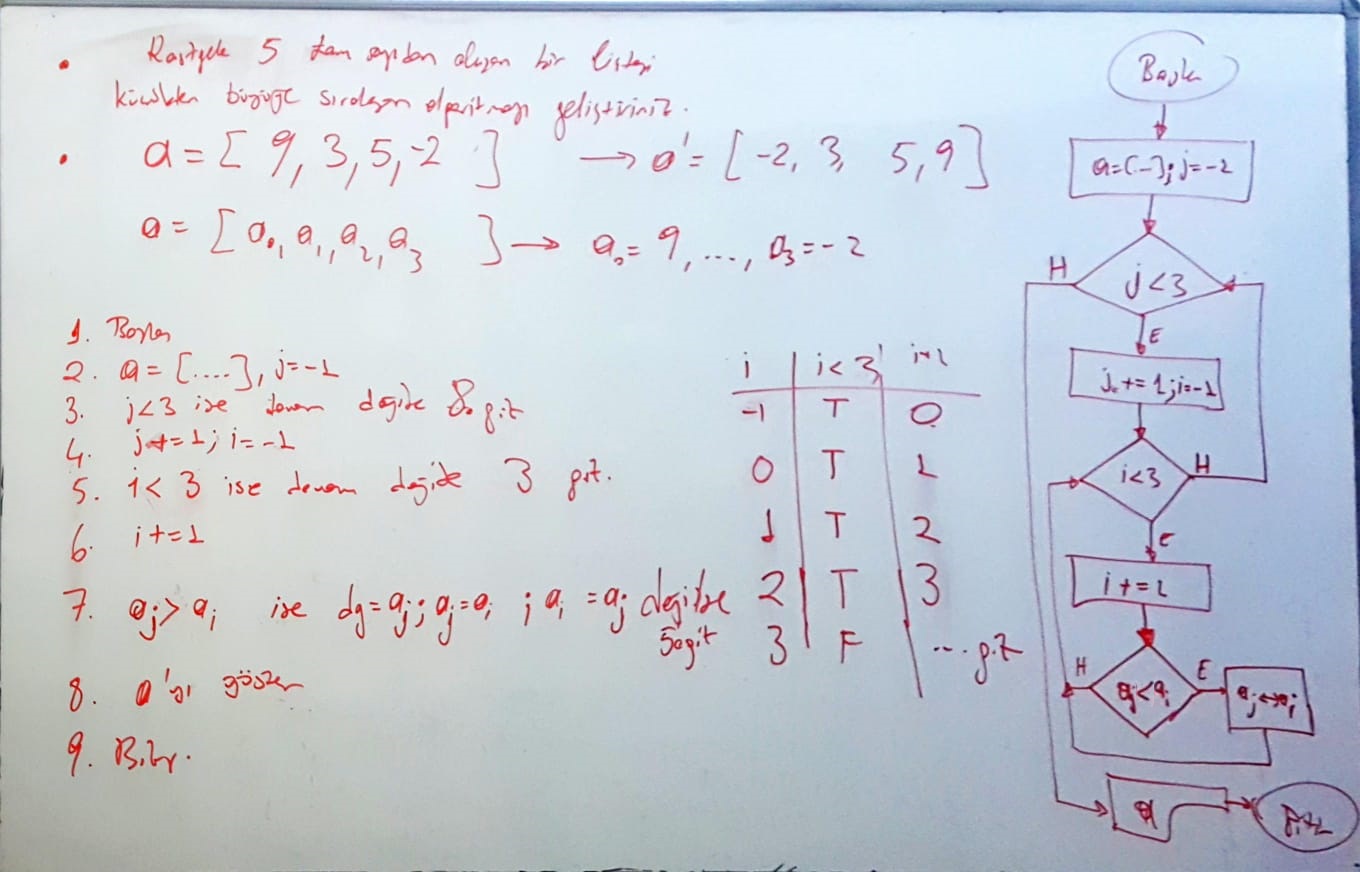 • Rastgele 5 tam sayıdan oluşan bir listeyi
küçükten büyüğe sıralayan algoritmayı geliştiriniz.
• a = [ 9, 3, 5, -2 ] → a' = [ -2, 3, 5, 9 ]
a = [ a₀, a₁, a₂, a₃ ] → a₀ = 9, ..., a₃ = -2
1. Başla
2. a = [....], j=-1
3. j<3 ise devam değilse 8. git
4. j+=1; i=-1
5. i<3 ise devam değilse 3 git.
6. i+=1
7. aj > ai ise dg=aj; aj=ai ; ai =aj değilse
5e git
8. a'yı göster
9. Bitir.
i | i<3 | i+1
-1 | T | 0
0 | T | 1
1 | T | 2
2 | T | 3
3 | F | ... git
Başla
a=[-]; j=-2
j<3
H
E
j+=1; i=-1
i<3
H
E
i+=1
aj<ai
H
E
aj↔ai
a
Bitir